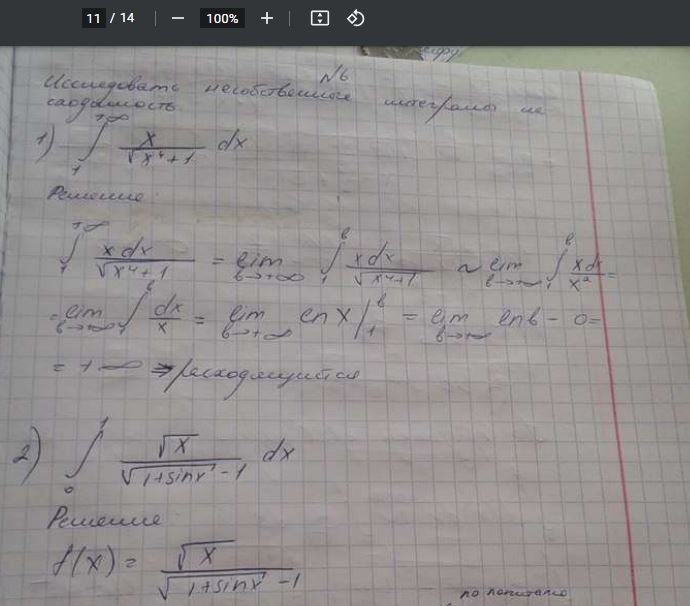 11 / 14 — 100% +
№6
Исследовать несобственные интегралы на
сходимость
1) ∫₁^{+∞} x/√(x⁴+1) dx
Решение
∫₁^{+∞} x dx/√(x⁴+1) = lim_{b→+∞} ∫₁^b x dx/√(x⁴+1) ~ lim_{b→+∞} ∫₁^b x dx/x² =
= lim_{b→+∞} ∫₁^b dx/x = lim_{b→+∞} ln x |₁^b = lim_{b→+∞} ln b - 0 =
= +∞ ⇒ расходящийся
2) ∫₀¹ √x/(√(1+sinx) - 1) dx
Решение
f(x) = √x/(√(1+sinx) - 1)